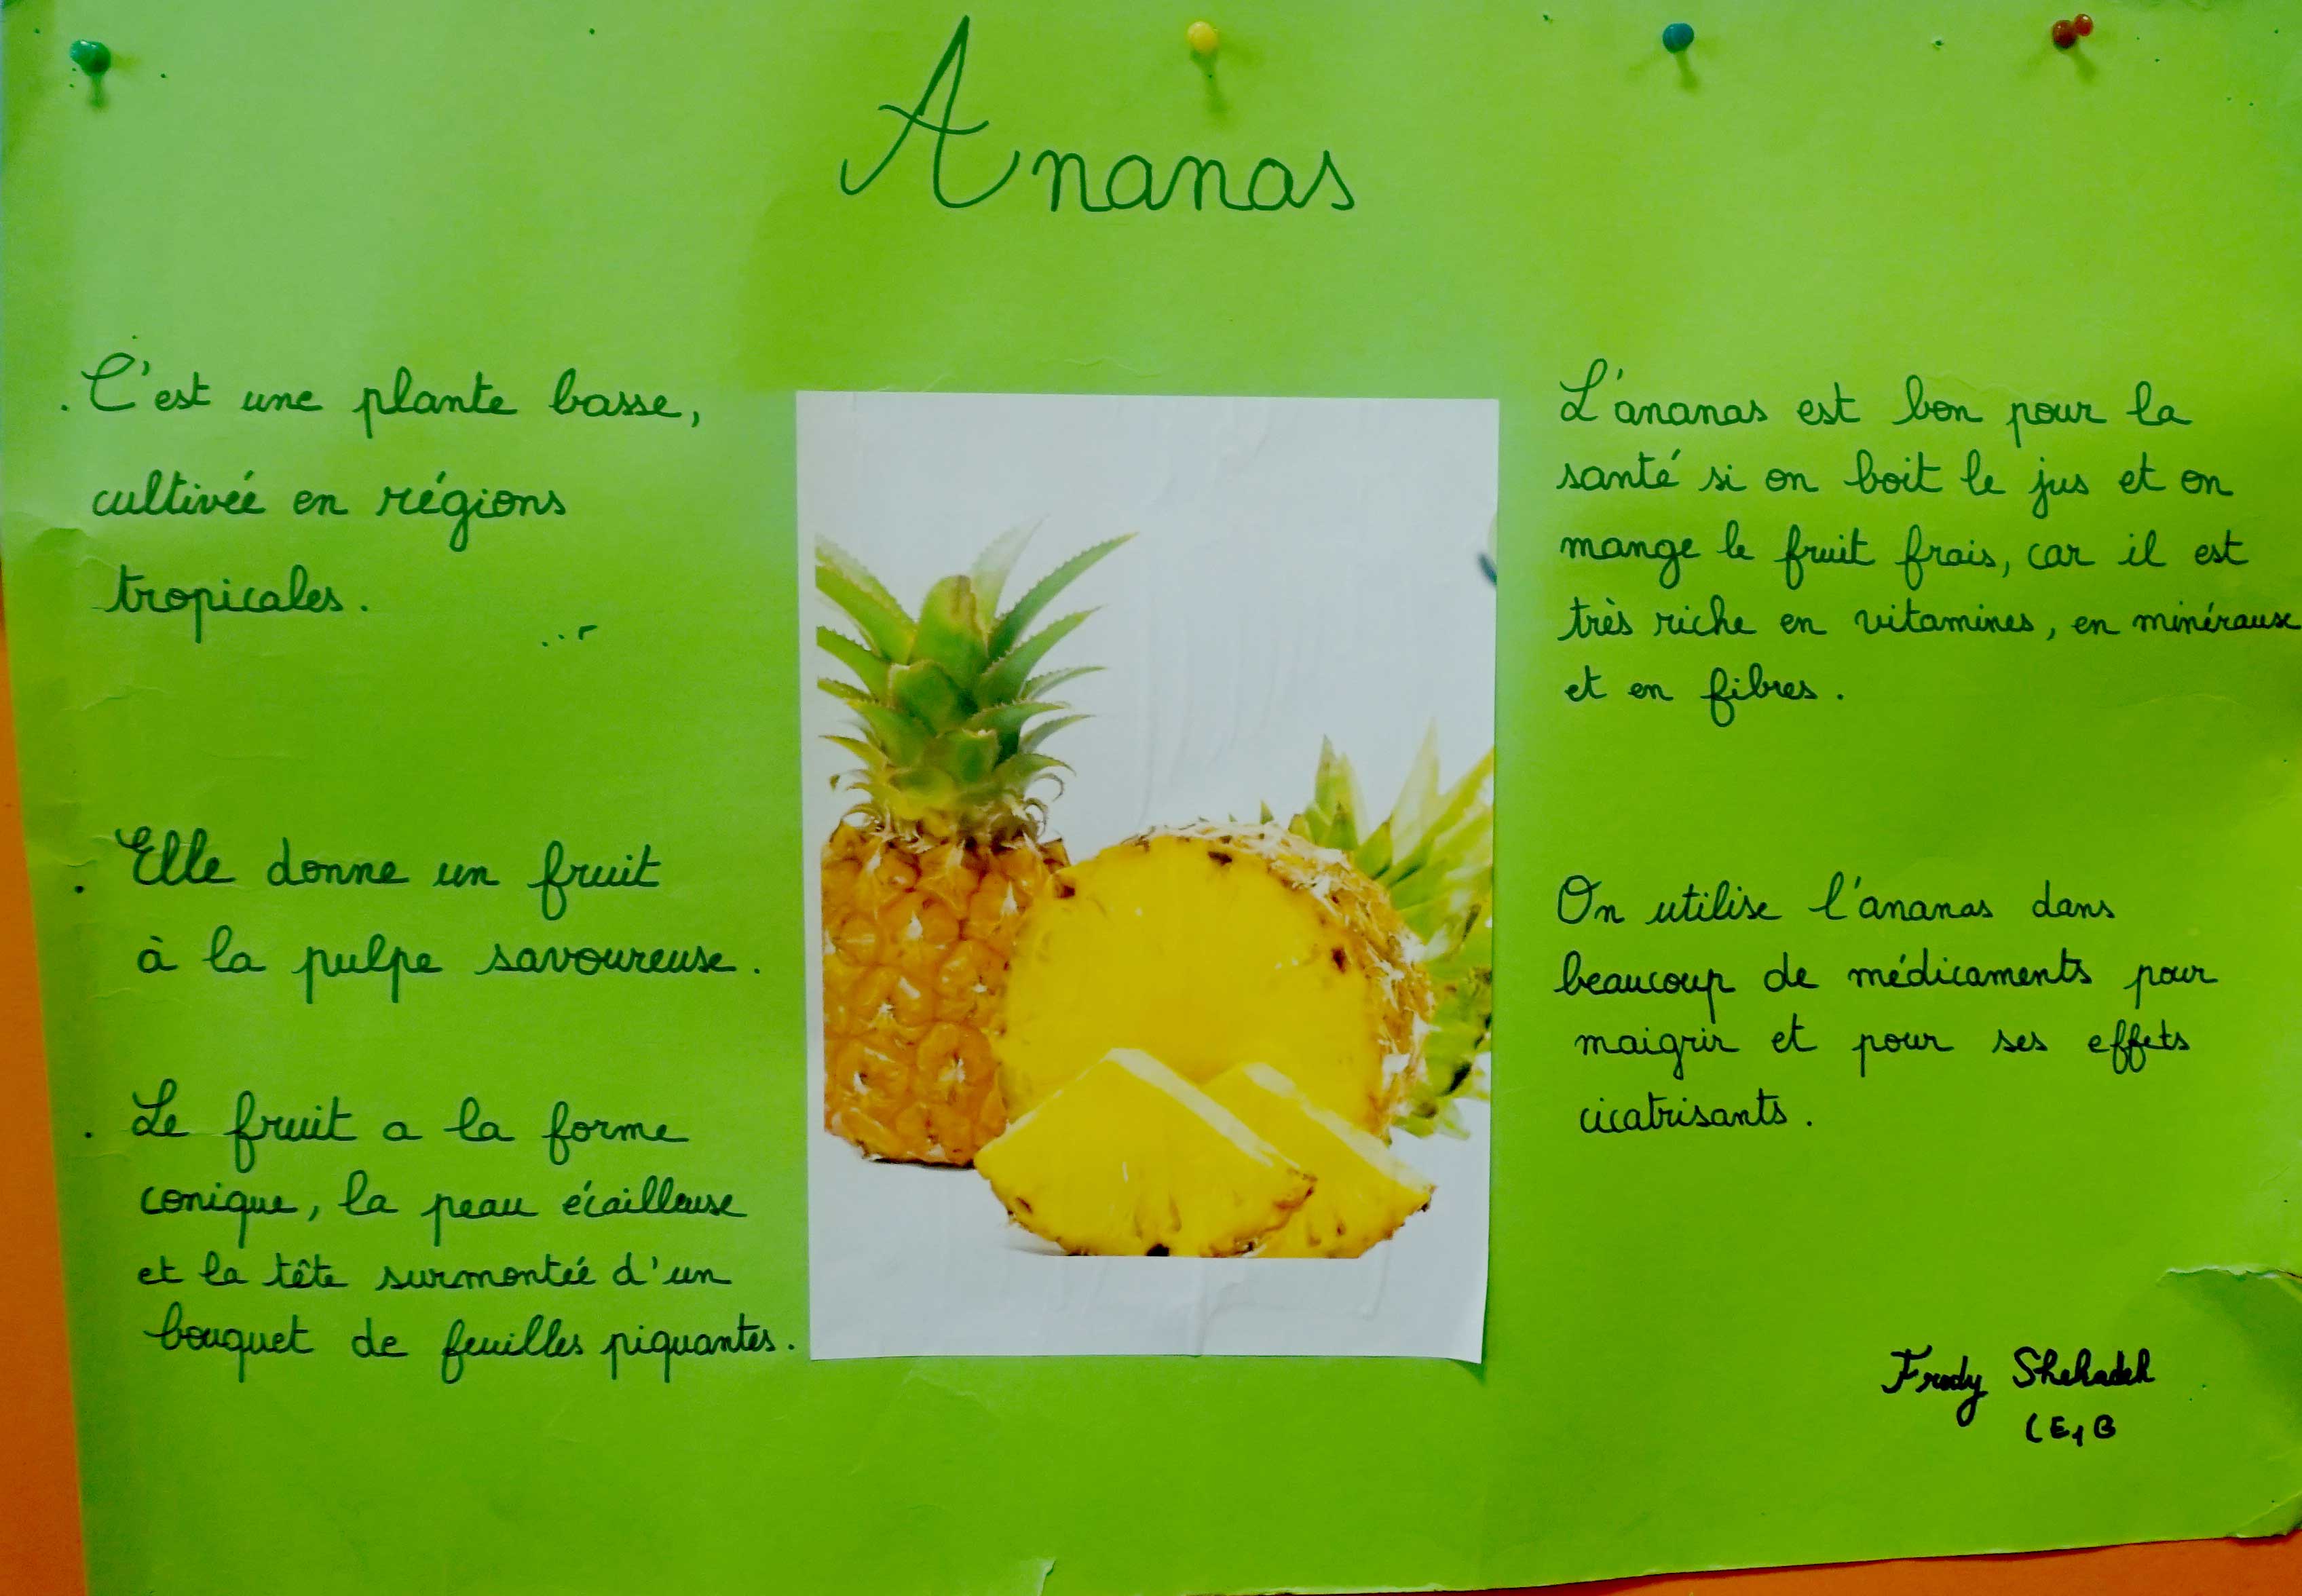 Ananas
. C'est une plante basse,
cultivée en régions
tropicales.
. Elle donne un fruit
à la pulpe savoureuse.
. Le fruit a la forme
conique, la peau écailleuse
et la tête surmontée d'un
bouquet de feuilles piquantes.
L'ananas est bon pour la
santé si on boit le jus et on
mange le fruit frais, car il est
très riche en vitamines, en minéraux
et en fibres.
On utilise l'ananas dans
beaucoup de médicaments pour
maigrir et pour ses effets
cicatrisants.
Fredy Shehadeh
CE1B